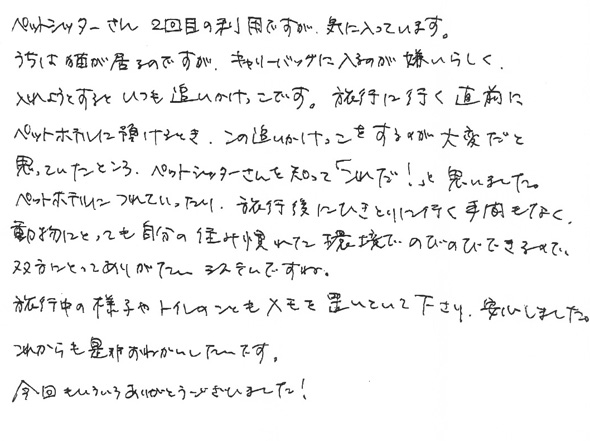 ペットシッターさん 2回目の利用ですが、気に入っています。
うちは猫が居るのですが、キャリーバッグに入るのが嫌いらしく、
入れようとするといつも追いかけっこです。旅行に行く直前に
ペットホテルに預けるとき、この追いかけっこをするのが大変だと
思っていたところ、ペットシッターさんを知って「これだ!」と思いました。
ペットホテルにつれていったり、旅行後にひきとりに行く手間もなく、
動物にとっても自分の住み慣れた環境でのびのびできるので、
双方にとってありがたいシステムですね。
旅行中の様子やトイレのこともメモを置いていて下さり、安心しました。
これからも是非おねがいしたいです。
今回もいろいろありがとうございました!